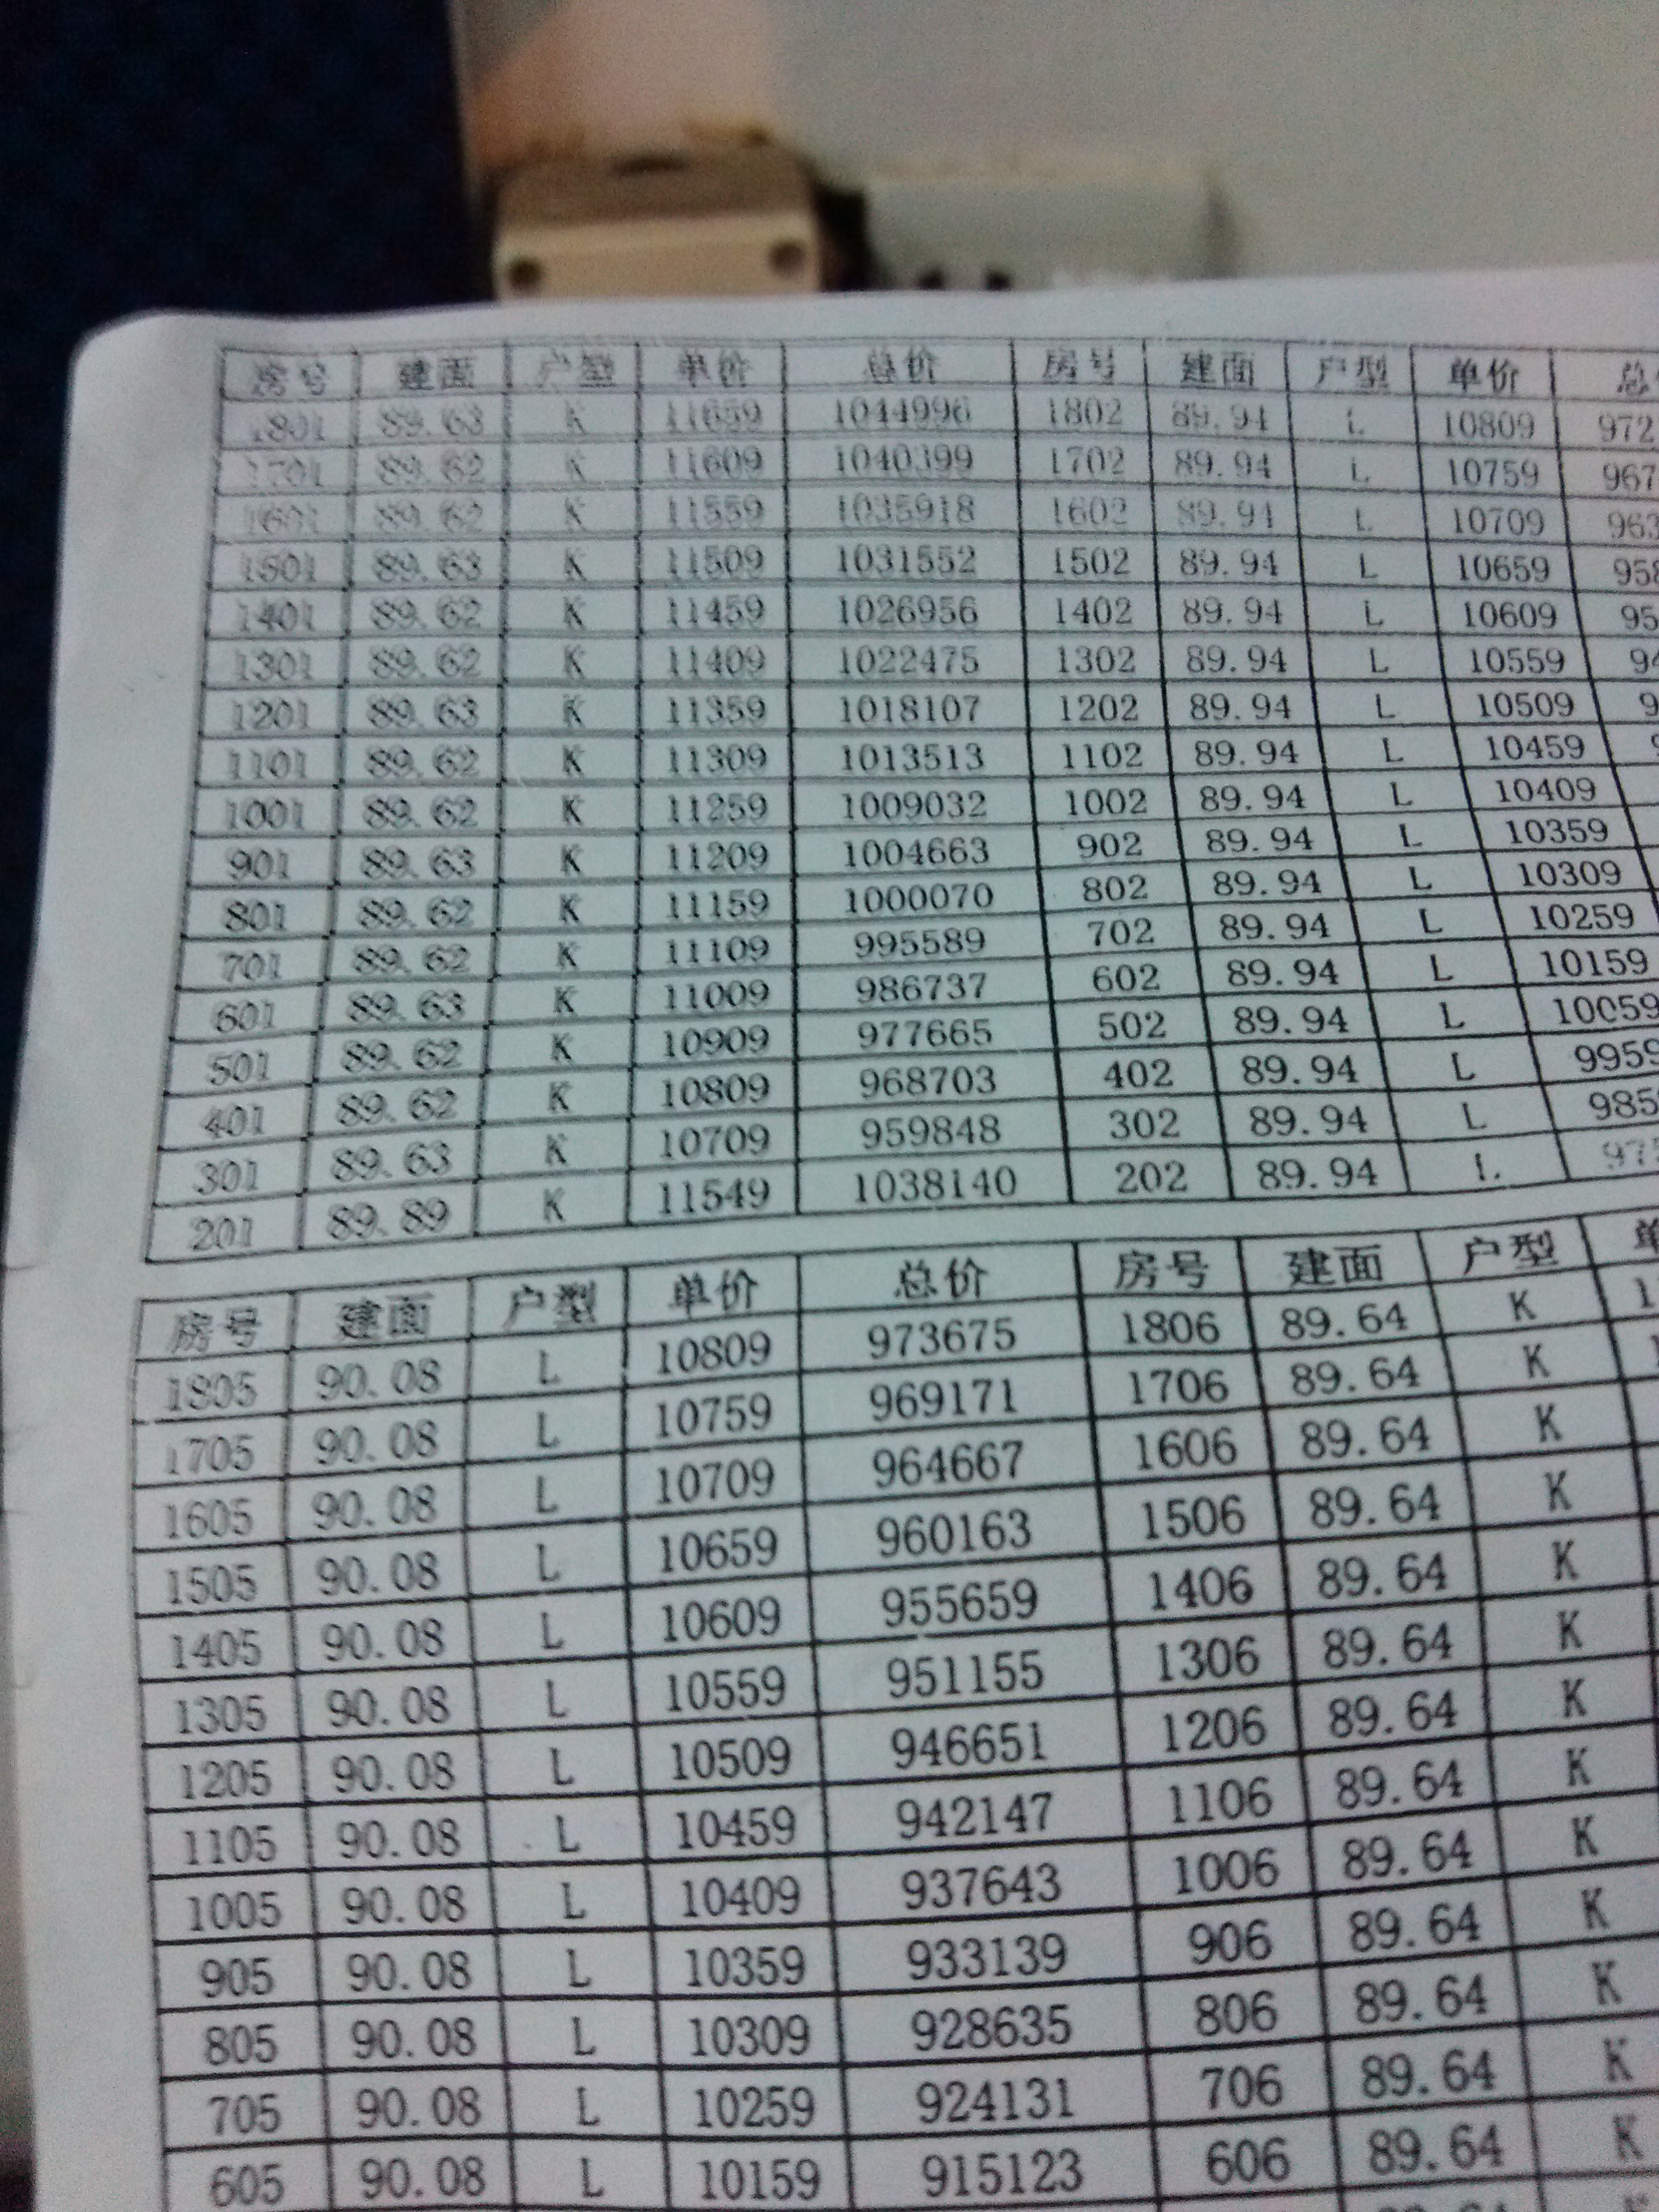 房号 建面 户型 单价 总价 房号 建面 户型 单价
1801 89.63 K 11659 1044996 1802 89.94 L 10809
1701 89.62 K 11609 1040399 1702 89.94 L 10759
1601 89.62 K 11559 1035918 1602 89.94 L 10709
1501 89.63 K 11509 1031552 1502 89.94 L 10659
1401 89.62 K 11459 1026956 1402 89.94 L 10609
1301 89.62 K 11409 1022475 1302 89.94 L 10559
1201 89.63 K 11359 1018107 1202 89.94 L 10509
1101 89.62 K 11309 1013513 1102 89.94 L 10459
1001 89.62 K 11259 1009032 1002 89.94 L 10409
901 89.63 K 11209 1004663 902 89.94 L 10359
801 89.62 K 11159 1000070 802 89.94 L 10309
701 89.62 K 11109 995589 702 89.94 L 10259
601 89.63 K 11009 986737 602 89.94 L 10159
501 89.62 K 10909 977665 502 89.94 L 10059
401 89.62 K 10809 968703 402 89.94 L 9959
301 89.63 K 10709 959848 302 89.94 L 985
201 89.89 K 11549 1038140 202 89.94 L
房号 建面 户型 单价 总价 房号 建面 户型 单
1805 90.08 L 10809 973675 1806 89.64 K
1705 90.08 L 10759 969171 1706 89.64 K
1605 90.08 L 10709 964667 1606 89.64 K
1505 90.08 L 10659 960163 1506 89.64 K
1405 90.08 L 10609 955659 1406 89.64 K
1305 90.08 L 10559 951155 1306 89.64 K
1205 90.08 L 10509 946651 1206 89.64 K
1105 90.08 L 10459 942147 1106 89.64 K
1005 90.08 L 10409 937643 1006 89.64 K
905 90.08 L 10359 933139 906 89.64 K
805 90.08 L 10309 928635 806 89.64 K
705 90.08 L 10259 924131 706 89.64 K
605 90.08 L 10159 915123 606 89.64 K